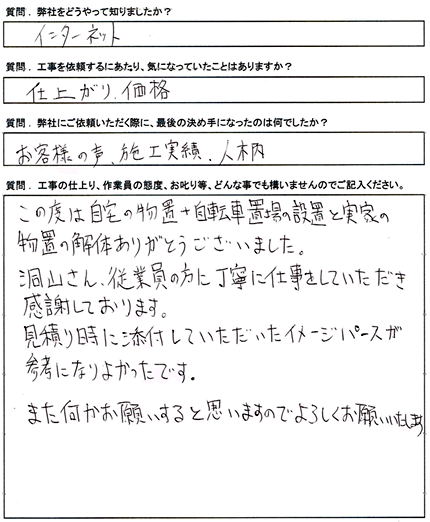 質問．弊社をどうやって知りましたか？
インターネット
質問．工事を依頼するにあたり、気になっていたことはありますか？
仕上がり、価格
質問．弊社にご依頼いただく際に、最後の決め手になったのは何でしたか？
お客様の声、施工実績、人柄
質問．工事の仕上り、作業員の態度、お叱り等、どんな事でも構いませんのでご記入ください。
この度は自宅の物置＋自転車置場の設置と実家の
物置の解体ありがとうございました。
洞山さん、従業員の方に丁寧に仕事をしていただき
感謝しております。
見積り時に添付していただいたイメージパースが
参考になりよかったです。
また何かお願いすると思いますのでよろしくお願いいたします